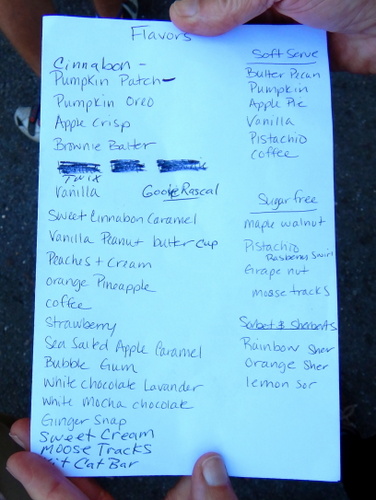 Flavors
Cinnabon -
Pumpkin Patch -
Pumpkin Oreo
Apple Crisp
Brownie Batter
Twix
Vanilla
Gooie Rascal
Sweet Cinnabon Caramel
Vanilla Peanut butter cup
Peaches + Cream
orange Pineapple
coffee
Strawberry
Sea Salted Apple Caramel
Bubble Gum
White chocolate Lavander
White Mocha chocolate
Ginger Snap
Sweet Cream
Moose Tracks
Kit Cat Bar
Soft Serve
Butter Pecan
Pumpkin
Apple Pie
Vanilla
Pistachio
coffee
Sugar free
Maple walnut
Pistachio
Rasberry Swirl
Grape nut
moose tracks
Sorbet & Sherberts
Rainbow Sher
Orange Sher
lemon Sor